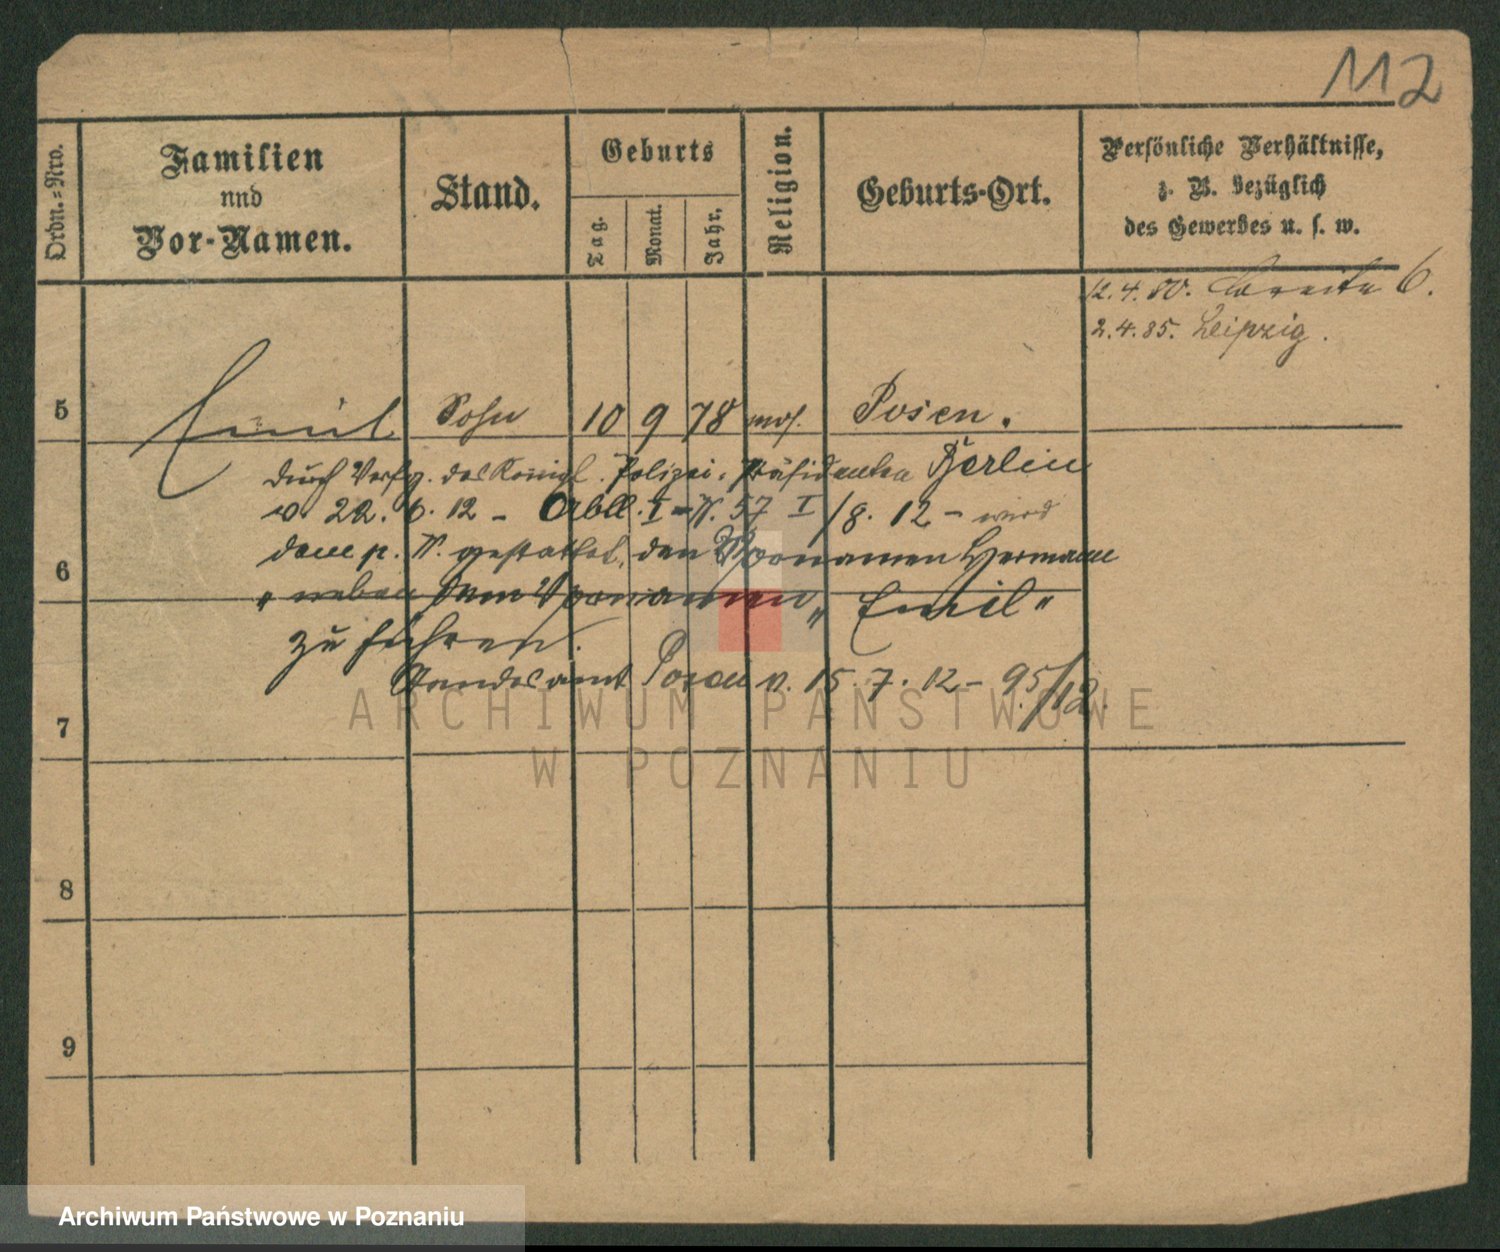 112
Ordn.=Nro.
Familien
nnd
Vor-Namen.
Stand.
Geburts
Tag.
Monat.
Jahr.
Religion.
Geburts-Ort.
Persönliche Verhältnisse,
z. B. bezüglich
des Gewerbes u. s. w.
12. 4. 80. Breite 6.
2. 4. 85. Leipzig.
5 Emil Sohn 10 9 78 mos. Posen.
durch Verfg. des Königl. Polizei-Präsidenten Berlin
v. 22. 6. 12 - Abtl. I - N. 57 I /8. 12 - wird
dem p. N. gestattet, den Vornamen Hermann
6
" neben dem Vornamen " Emil "
zu führen.
Standesamt Posen v. 15. 7. 12 - 95/12.
7
8
9
ARCHIWUM PAŃSTWOWE
W POZNANIU
Archiwum Państwowe w Poznaniu